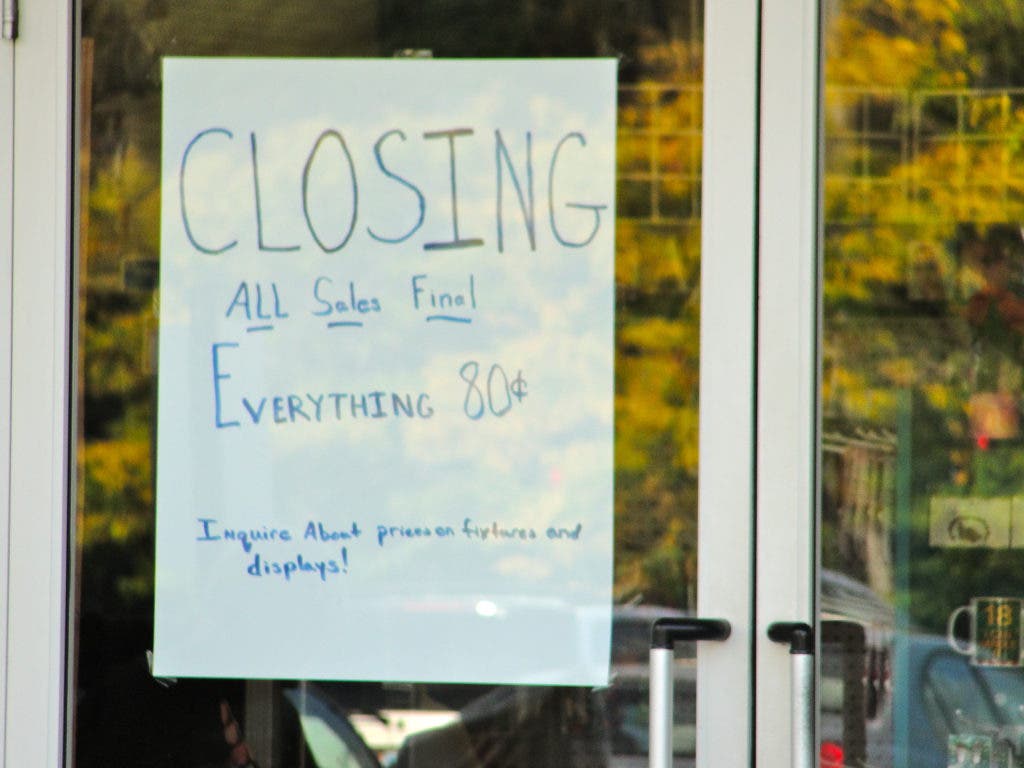 CLOSING
ALL Sales Final
EVERYTHING 80¢
Inquire About prices on fixtures and
displays!
18